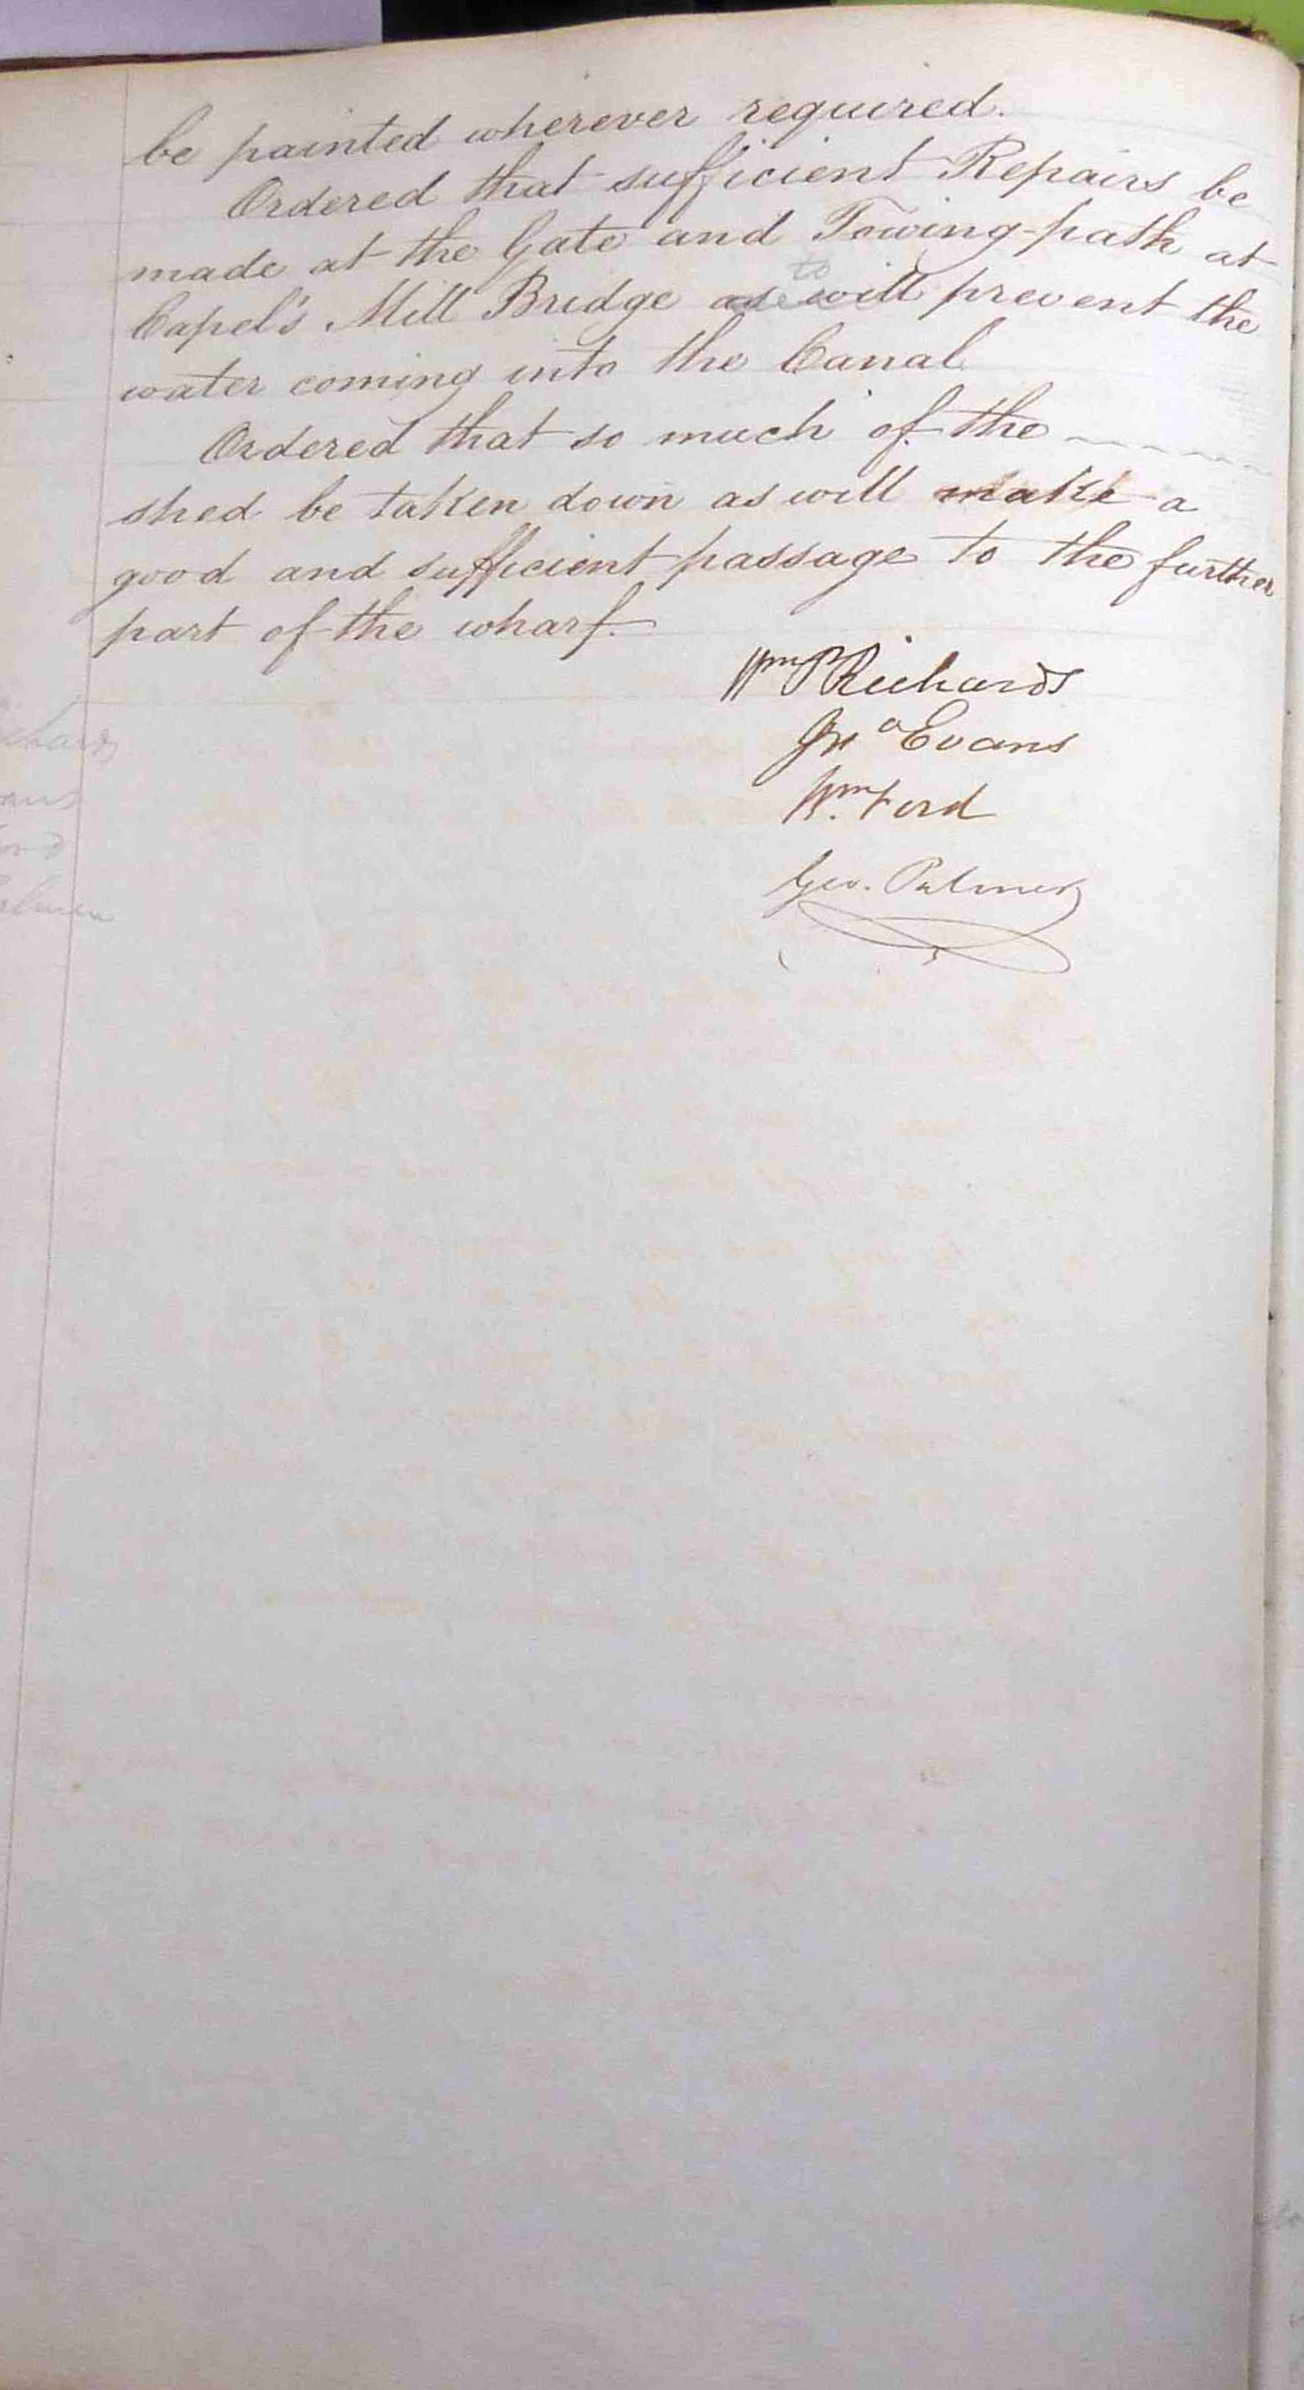 be painted wherever required.
Ordered that sufficient Repairs be
made at the Gate and Towing-path at
to
Capel's Mill Bridge as will prevent the
water coming into the Canal
Ordered that so much of the
shed be taken down as will make a
good and sufficient passage to the further
part of the wharf.
Wm P Richards
Jno Evans
Wm. Ford
Geo. Palmer